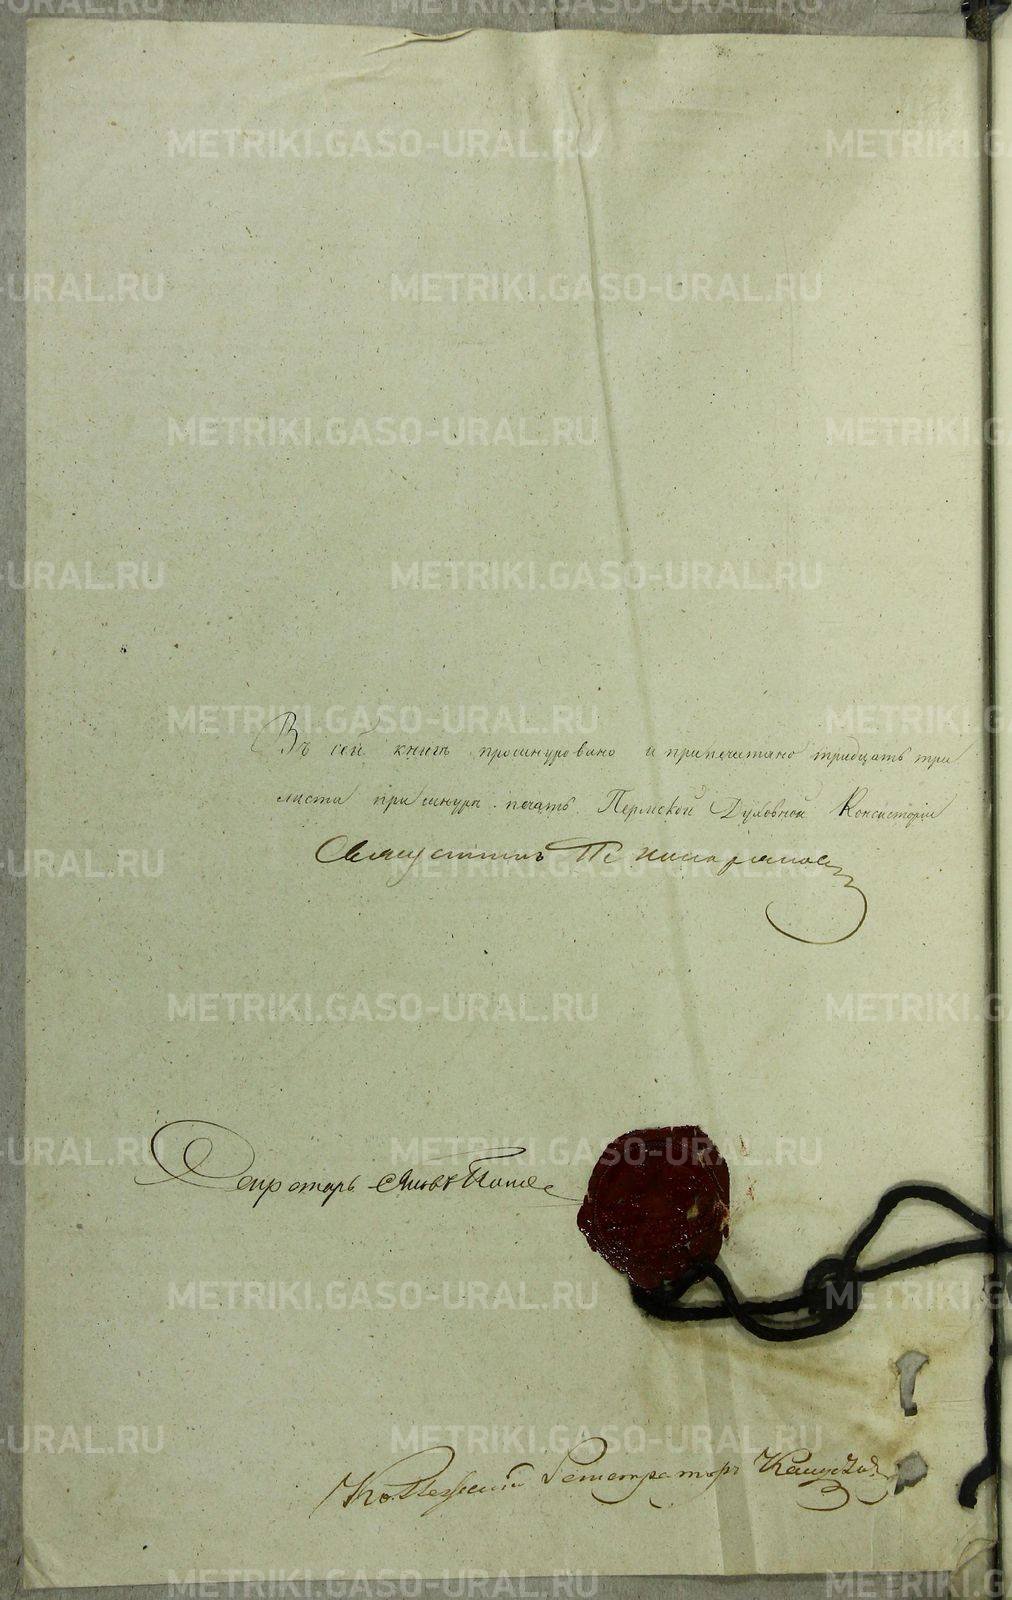 METRIKI.GASO-URAL.RU
Въ сей книгѣ прошнуровано и припечатано тридцать три
листа при шнурѣ печать Пермской Духовной Консисторіи
Секретарь Яковъ Попов
Коллежский Регистраторъ